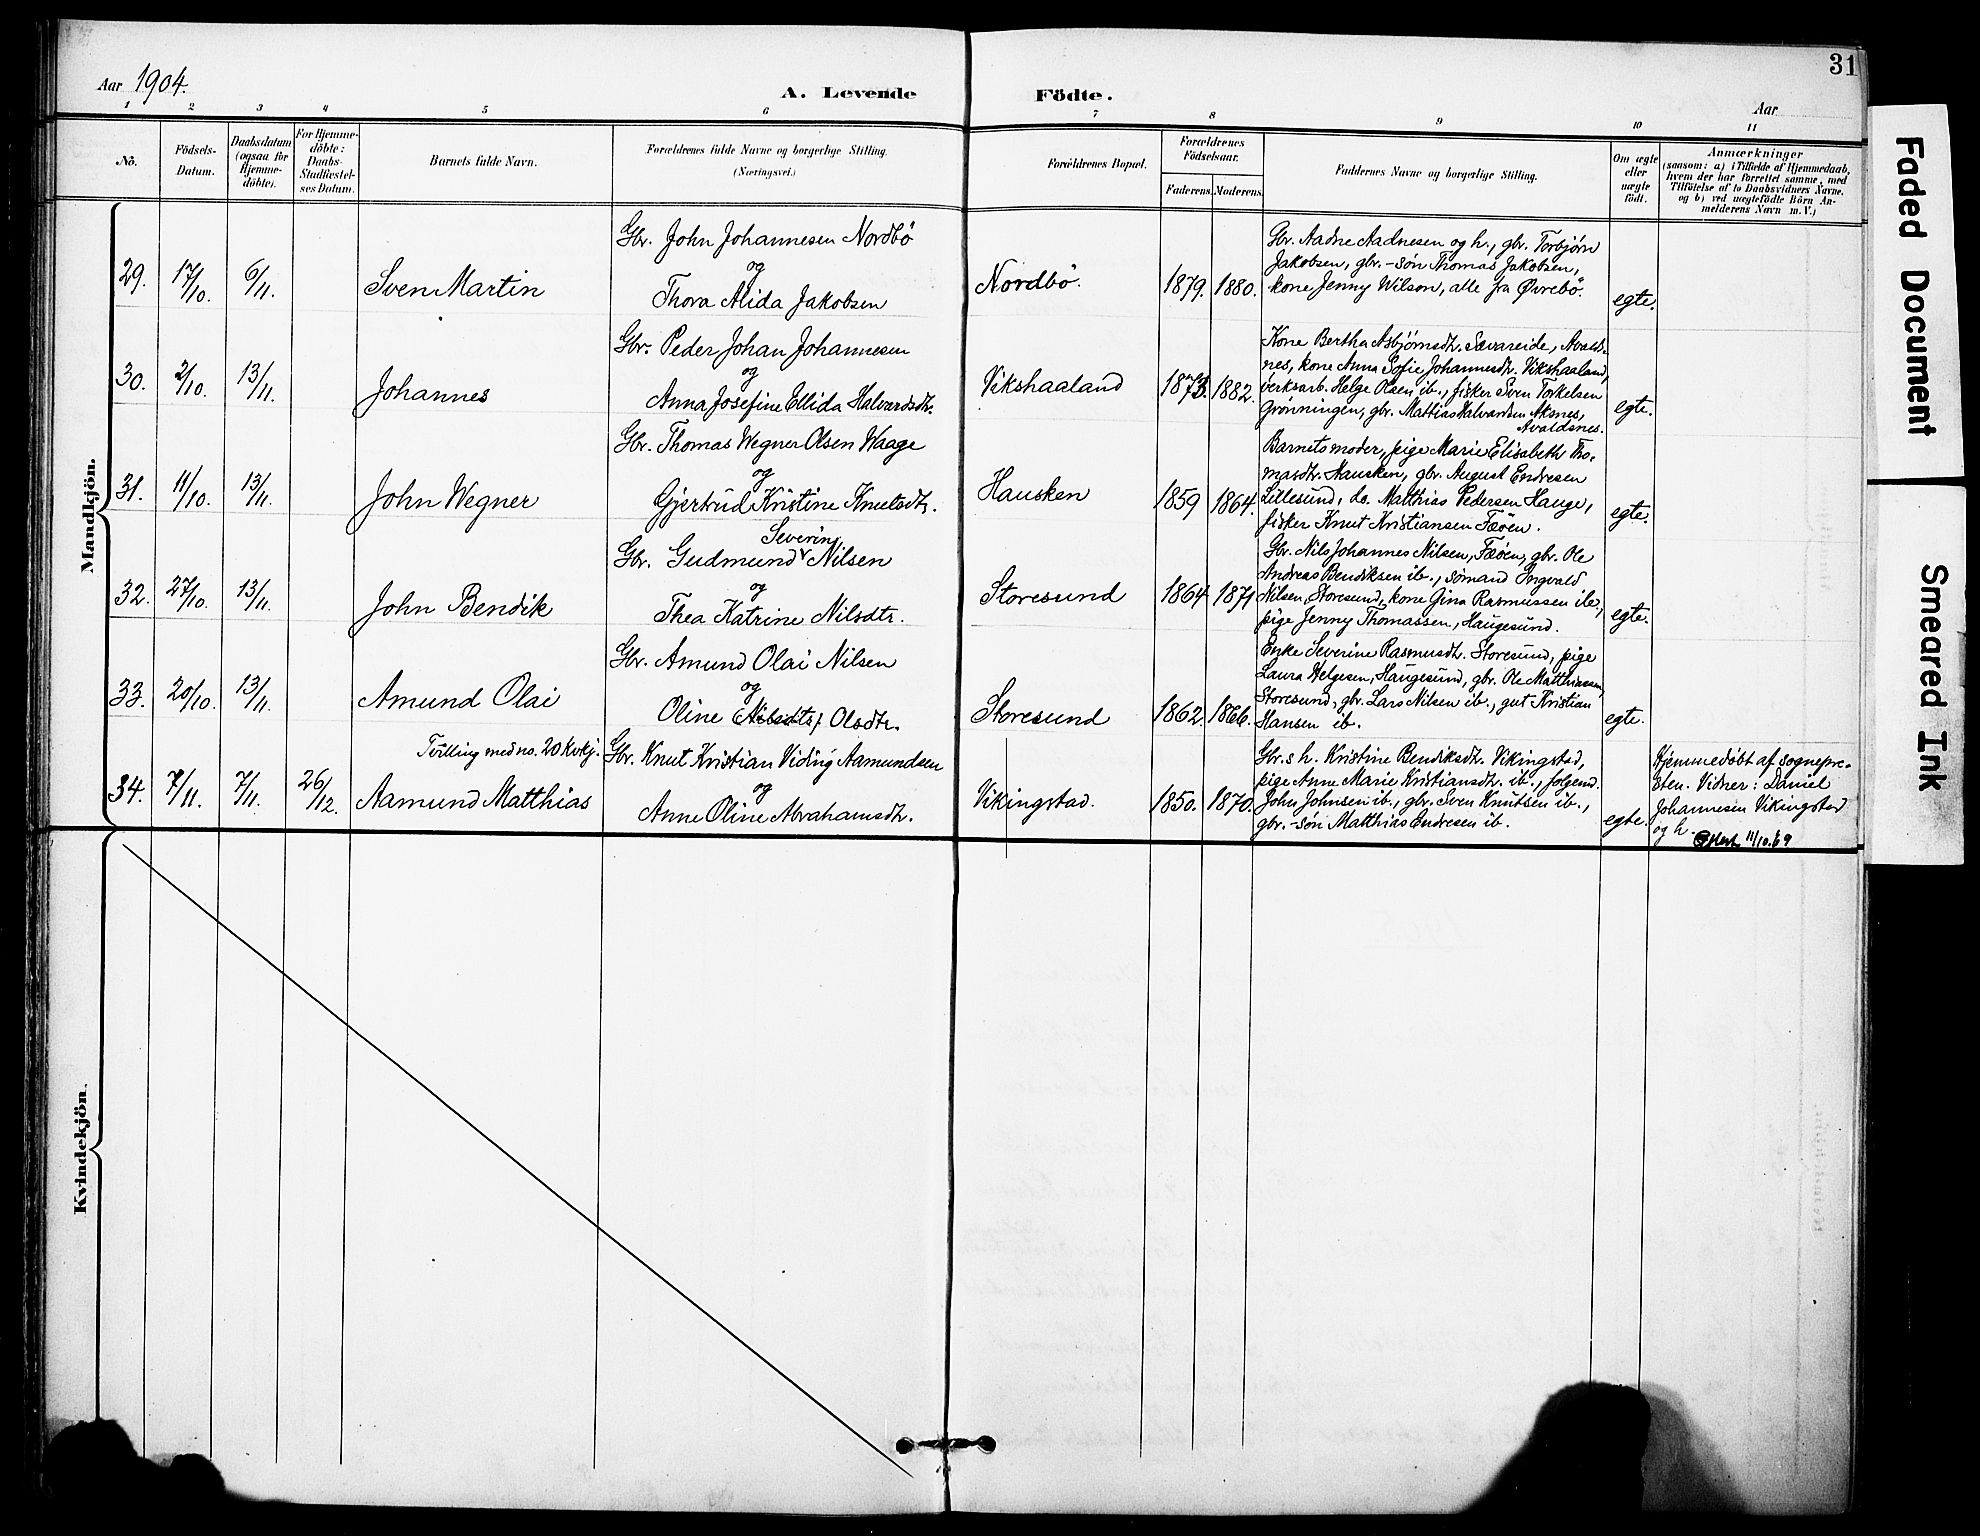 31
Aar 1904.
A. Levende Födte.
Aar
1 2 3 4 5 6 7 8 9 10 11
No.
Födsels-
Datum.
Daabsdatum
(ogsaa for
Hjemme-
döbte).
For Hjemme-
döbte:
Daabs-
Stadfæstel-
ses Datum.
Barnets fulde Navn.
Forældrenes fulde Navne og borgerlige Stilling.
(Næringsvei.)
Forældrenes Bopæl.
Forældrenes
Födselsaar.
Faderens. Moderens.
Faddernes Navne og borgerlige Stilling.
Om ægte
eller
uægte
födt.
Anmærkninger
(saasom: a) i Tilfælde af Hjemmedaab,
hvem der har forrettet samme, med
Tilföielse af to Daabsvidners Navne.
og b) ved uægtefödte Börn An-
melderens Navn m. V.)
Mandkjön.
29. 17/10. 6/11. Sven Martin
Gbr. John Johannesen Nordbö
og
Thora Alida Jakobsen
Nordbö. 1879. 1880.
Gbr. Aadne Aadnesen og h., gbr. Torbjørn
Jakobsen, gbr.-søn Thomas Jakobsen,
kone Jenny Wilson, alle fra Øvrebö.
egte.
30. 2/10. 13/11. Johannes
Gbr. Peder Johan Johannesen
og
Anna Josefine Ellida Halvardsdtr.
Vikshaaland 1873. 1882.
Kone Bertha Asbjørnsdtr. Sævareide, Avalds-
nes, kone Anna Sofie Johannesdtr. Vikshaaland,
verksarb. Helge Olsen ib., fisker Sven Torkelsen
Grønningen, gbr. Mattias Halvardsen Aksnes,
Avaldsnes.
egte.
31. 11/10. 13/11. John Wegner
Gbr. Thomas Wegner Olsen Waage
og
Gjertrud Kristine Knutsdtr.
Hausken 1859 1864.
Barnets moder, pige Marie Elisabeth Tho-
masdtr. Hausken, gbr. August Endresen
Lillesund, do. Matthias Pedersen Hauge,
fisker Knut Kristiansen Fæöen.
egte.
32. 27/10. 13/11. John Bendik
Severin
Gbr. Gudmund Nilsen
og
Thea Katrine Nilsdtr.
Storesund 1864 1871
Gbr. Nils Johannes Nilsen, Fæöen, gbr. Ole
Andreas Bendiksen ib., sömand Ingvald
Nilsen, Storesund, kone Gina Rasmussen ib.,
pige Jenny Thomassen, Haugesund.
egte.
33. 20/10. 13/11. Amund Olai
Gbr. Amund Olai Nilsen
og
Oline (Nilsdtr) Olsdtr.
Storesund 1862. 1866.
Enke Severine Rasmusdtr. Storesund, pige
Laura Helgesen, Haugesund, gbr. Ole Matthiassen,
Storesund, gbr. Lars Nilsen ib., gut Kristian
Hansen ib.
egte.
Tvilling med no. 20 kvkj.
34. 7/11. 7/11. 26/12. Aamund Matthias
Gbr. Knut Kristian Viding Aamundsen
og
Anne Oline Abrahamsdtr.
Vikingstad. 1850. 1870.
Gbr.s h. Kristine Bendiksdtr. Vikingstad,
pige Anne Marie Kristiansdtr. ib., folgem.
John Johnsen ib., gbr. Sven Knutsen ib.,
gbr.-søn Matthias Endresen ib.
egte.
Hjemmedöbt af sognepre-
sten. Vidner: Daniel
Johannesen Vikingstad
og h.
11/10.69
Kvindekjön.
Faded Document
Smeared Ink